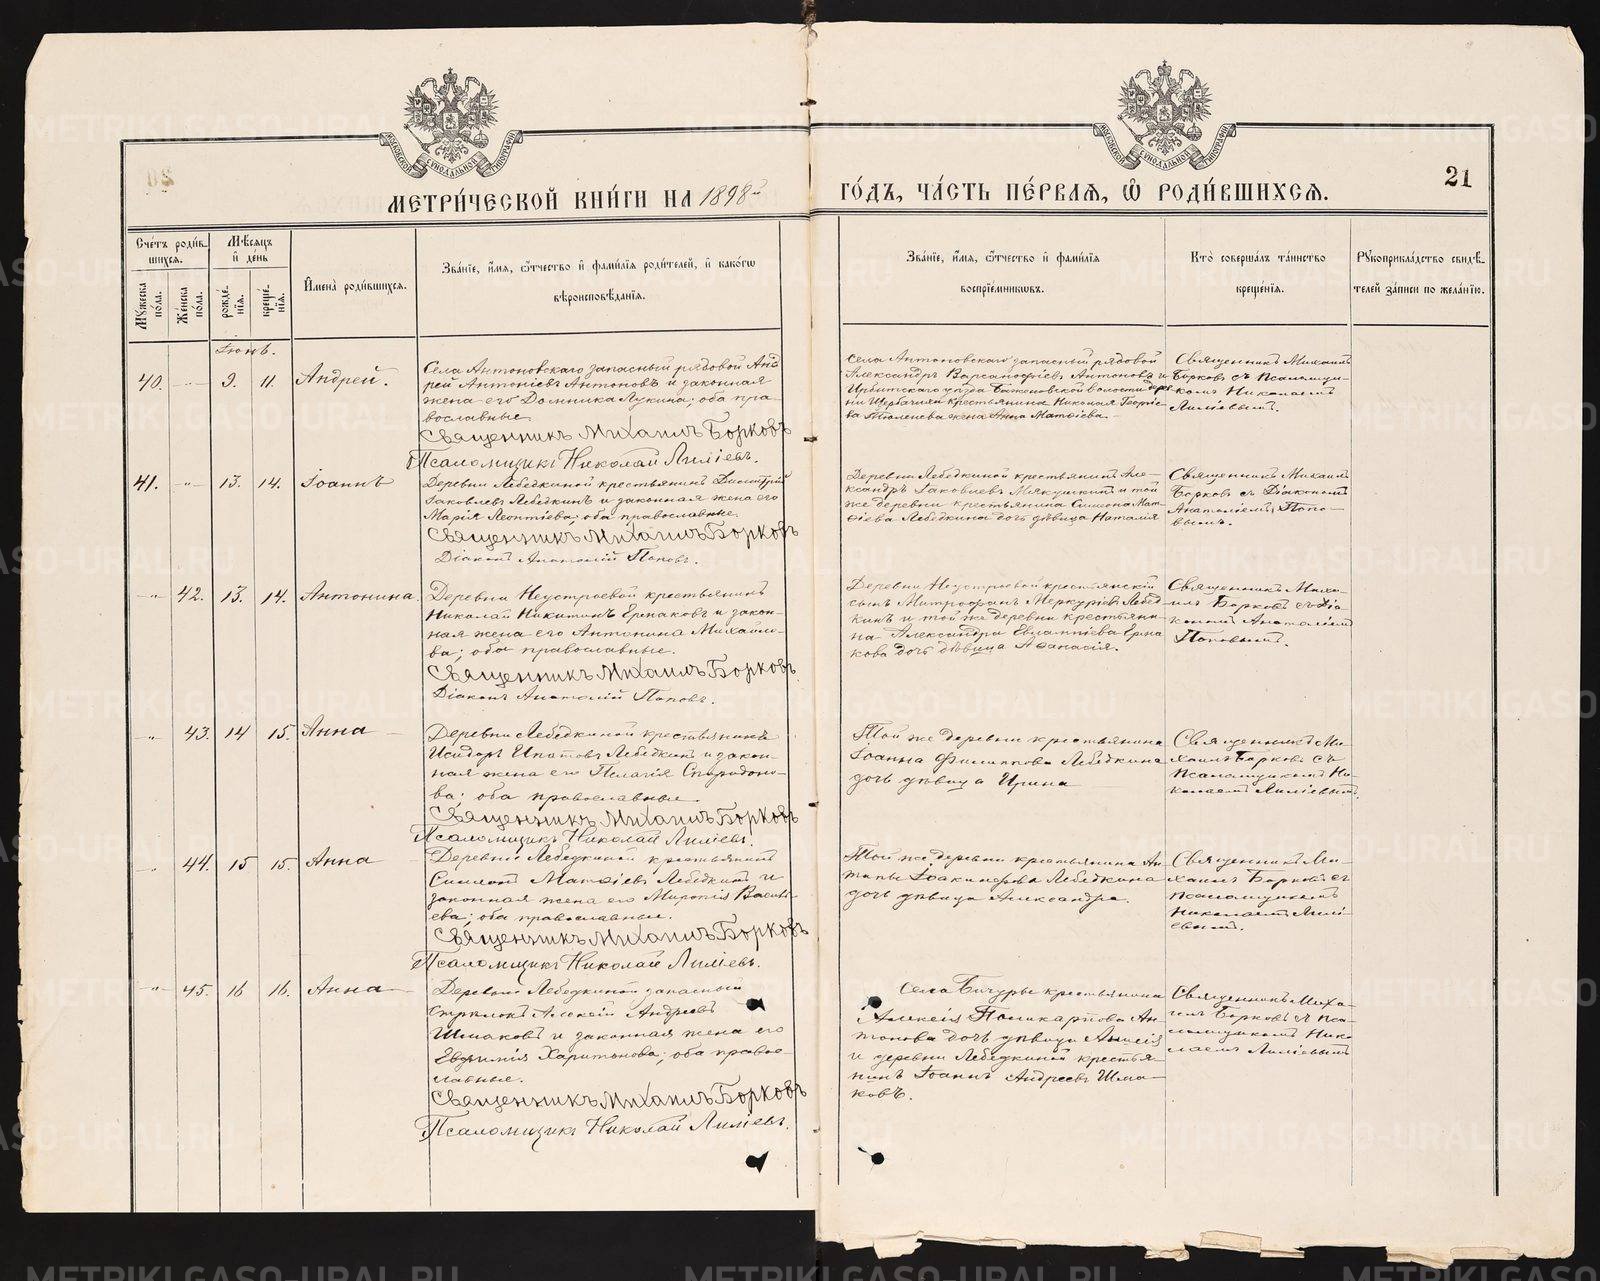 МОСКОВСКОЙ СѴНОДАЛЬНОЙ ТИПОГРАФІИ
МОСКОВСКОЙ СѴНОДАЛЬНОЙ ТИПОГРАФІИ
21
МЕТРИ́ЧЕСКОЙ КНИ́ГИ НА 1898й ГО́ДЪ, ЧА́СТЬ ПЕ́РВАѦ, Ѽ РОДИ́ВШИХСѦ.
Сче́тъ роди́в-
шихсѧ.
Мꙋжеска по́ла.
Же́нска по́ла.
Мѣ́сѧцъ и҆ де́нь
рожде́нїѧ.
креще́нїѧ.
И҆мена̀ роди́вшихсѧ.
Зва́нїе, и҆́мѧ, ѻ҆́тчество и҆ фами́лїѧ роди́телей, и҆ како́гѡ
вѣроисповѣ́данїѧ.
Зва́нїе, и҆́мѧ, ѻ҆́тчество и҆ фами́лїѧ
воспрїе́мникѡвъ.
Кто̀ соверша́лъ та́инство
креще́нїѧ.
Рꙋкоприкла́дство свидѣ́-
телей за́писи по жела́нїю.
Іюнь.
40. -"- 9. 11. Андрей.
Села Антоновскаго запасный рядовой Анд
рей Антоніевъ Антоновъ и законная
жена его Домника Лукина; оба пра-
вославные
Священникъ Михаилъ Борковъ
Псаломщикъ Николай Лиліевъ.
Села Антоновскаго запасный рядовой
Александръ Варсанофіевъ Антоновъ и
Ирбитскаго уѣзда волости дерев
ни крестьянина Николая Георгіе
ва Тюленева жена Анна Матѳіева.
Священникъ Михаилъ
Борковъ съ Псаломщи-
комъ Николаемъ
Лиліевымъ.
41. -"- 13. 14. Іоаннъ
Деревни Лебедкиной крестьянинъ Димитрій
Іаковлевъ Лебедкинъ и законная жена его
Марія Леонтіева; оба православные.
Священникъ Михаилъ Борковъ
Діаконъ Анатолій Поповъ.
Деревни Лебедкиной крестьянинъ Але-
ксандръ Іаковлевъ Мякушкинъ и той
же деревни крестьянина Симеона Мат-
ѳіева Лебедкина дочь дѣвица Наталія
Священникъ Михаилъ
Борковъ съ Діакономъ
Анатоліемъ Попо-
вымъ.
-"- 42. 13. 14. Антонина.
Деревни Неустроевой крестьянинъ
Николай Никитинъ Ермаковъ и закон-
ная жена его Антонина Михайло-
ва; оба православные.
Священникъ Михаилъ Борковъ.
Діаконъ Анатолій Поповъ.
Деревни Неустроевой крестьянскій
сынъ Митрофанъ Меркуріевъ Лебед
кинъ и той же деревни крестьяни-
на Александра Евлампіева Ерма
кова дочь дѣвица Аѳанасія.
Священникъ Миха-
илъ Борковъ съ Діа-
кономъ Анатоліемъ
Поповымъ.
-"- 43. 14 15. Анна
Деревни Лебедкиной крестьянинъ
Исидоръ Ипатовъ Лебедкинъ и закон-
ная жена его Пелагія Спиридоно-
ва; оба православные
Священникъ Михаилъ Борковъ
Псаломщикъ Николай Лиліевъ.
Той же деревни крестьянина
Іоанна Филиппова Лебедкина
дочь дѣвица Ирина
Священникъ Ми-
хаилъ Борковъ съ
Псаломщикомъ Ни-
колаемъ Лиліевымъ.
-"- 44. 15 15. Анна
Деревни Лебедкиной крестьянинъ
Симеонъ Матѳіевъ Лебедкинъ и
законная жена его Миропія Василь-
ева; оба православные.
Священникъ Михаилъ Борковъ
Псаломщикъ Николай Лиліевъ.
Той же деревни крестьянина Ан-
типы Іоакимова Лебедкина
дочь дѣвица Александра.
Священникъ Ми-
хаилъ Борковъ съ
Псаломщикомъ
Николаемъ Лилі-
евымъ.
-"- 45. 16 16. Анна
Деревни Лебедкиной запасный
стрѣлокъ Алексій Андреевъ
Шмаковъ и законная жена его
Евфимія Харитонова; оба право-
славные.
Священникъ Михаилъ Борковъ
Псаломщикъ Николай Лиліевъ.
Села Бичуры крестьянина
Алексія Поликарпова Ан-
тонова дочь дѣвица Анисія
и деревни Лебедкиной крестья-
нинъ Іоаннъ Андреевъ Шма-
ковъ.
Священникъ Миха-
илъ Борковъ съ Пса-
ломщикомъ Нико-
лаемъ Лиліевымъ
METRIKI.GASO-URAL.RU